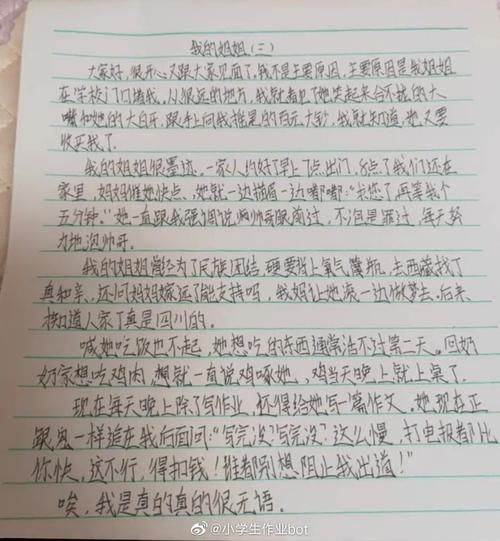 我的姐姐(二)
大家好,很开心又跟大家见面了,我不是主要原因,主要原因是我姐姐
在学校门口堵我。从很远的地方,我就看见了她笑起来合不拢的大
嘴和她的大白牙,跟手上向我摇晃的百元大钞,我就知道,她又要
收买我了。
我的姐姐很墨迹。一家人约好了早上7点出门,8点了我们还在
家里,妈妈催她快点,她就一边描眉一边嘟嘟:"去您了,再等我个
五分钟。"她一直跟我强调说,帅哥眼前过,不泡是罪过,每天努
力地泡帅哥。
我的姐姐曾经为了民族团结,硬要背上氧气罐瓶,去西藏找了
真和亲,还问妈妈嫁远了能支持吗,我妈让她滚一边做梦去,后来
才知道人家丁真是四川的。
喊她吃饭也不起,她想吃的东西通常活不过第二天。回奶
奶家想吃鸡肉,想就一直说鸡啄她,鸡当天晚上就上桌了。
现在每天晚上除了写作业,还得给她写一篇作文。她现在正
跟鬼一样追在我后面问:"写完没?写完没?这么慢,打电报都比
你快,这不行,得扣钱!谁都别想阻止我出道!"
唉,我是真的真的很无语。
@小学生作业bot